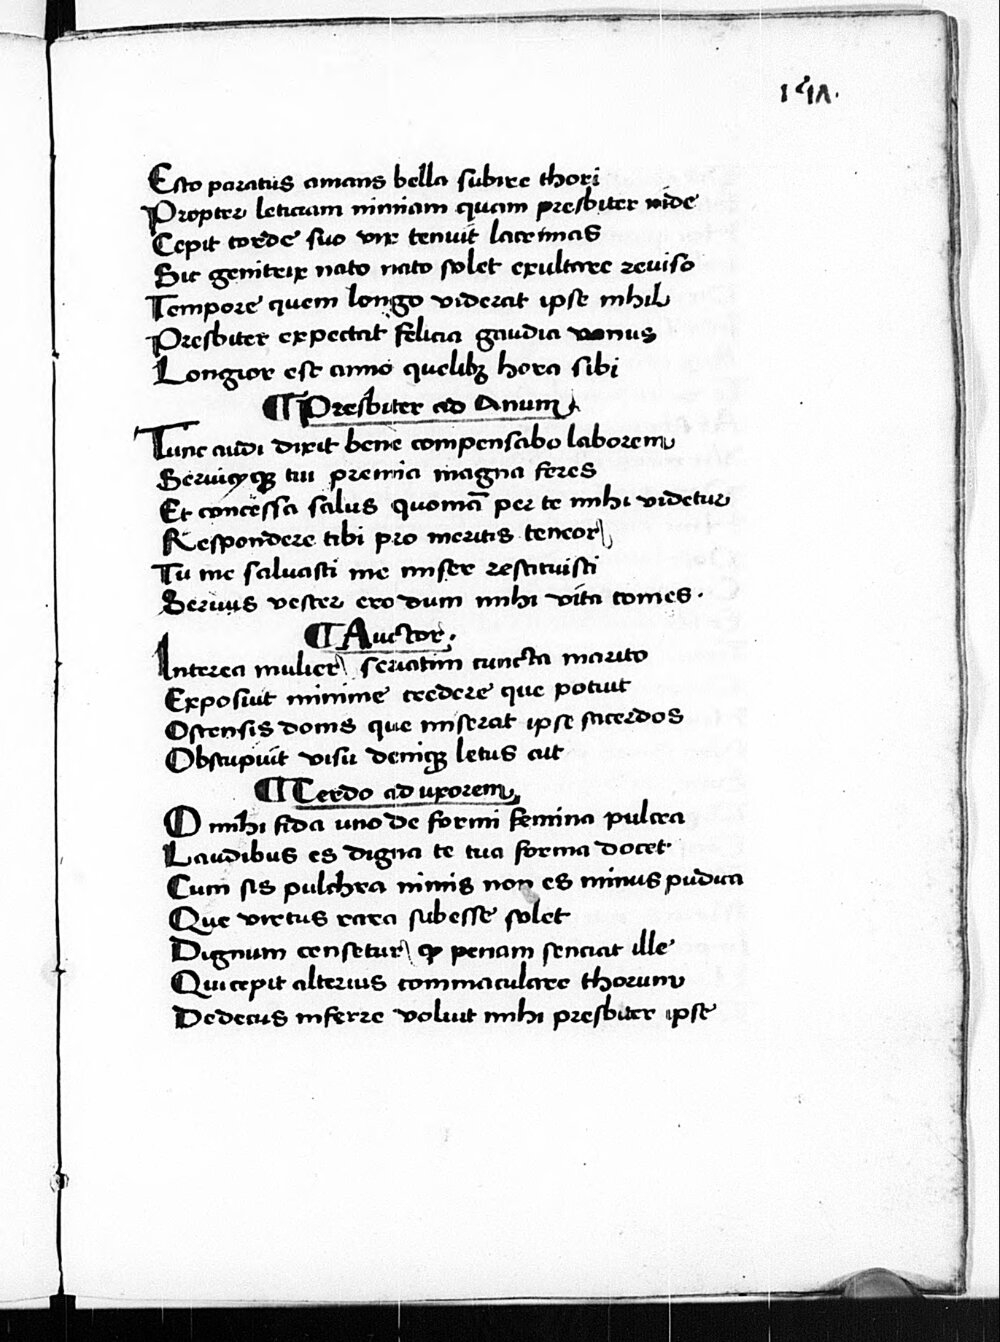 Esto paratus amans bella subire thori
Propter leticiam nimiam quam presbiter inde
Cepit corde suo vix tenuit lacrimas
Sic genitrix nato nato solet exultare reviso
Tempore quem longo viderat ipse nihil
Presbiter expectat felicia gaudia venus
Longior est anno quelibꝫ hora sibi
¶ Presbiter ad Anum
Tunc audi dixit bene compensabo laborem
Serviciqꝫ tui premia magna feres
Et concessa salus quoniā per te mihi videtur
Respondere tibi pro meritis teneor
Tu me salvasti me miser restituisti
Servus vester ero dum mihi vita comes.
¶ Auctor.
Interea mulier seriatim cuncta marito
Exposuit minime credere que potuit
Ostensis donis que miserat ipse sacerdos
Obstupuit visu deniqꝫ letus ait
¶ Cerdo ad uxorem
O mihi fida uno de formi femina pulcra
Laudibus es digna te tua forma docet
Cum sis pulchra nimis non es minus pudica
Que virtus rara subesse solet
Dignum censetur ꝙ penam senciat ille
Qui cepit alterius commaculare thorum
Dedecus inferre voluit mihi presbiter ipse